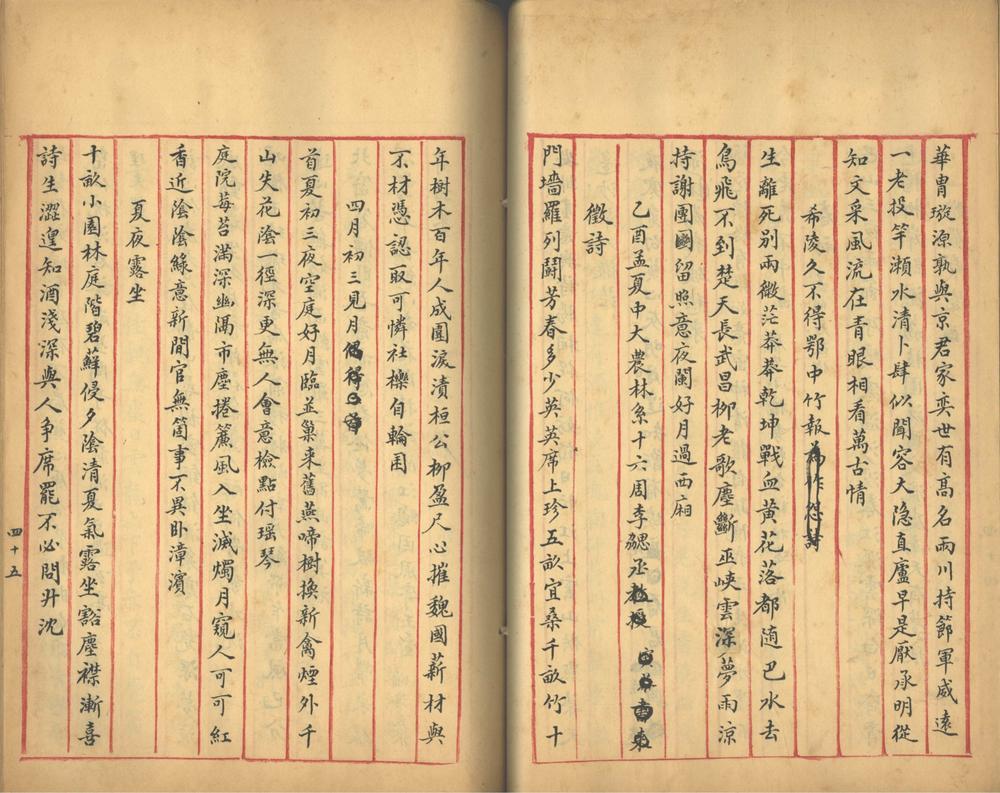 華胄璇源孰與京君家奕世有高名兩川持節軍威遠
一老投竿瀨水清卜肆似聞容大隐直廬早是厭承明從
知文采風流在青眼相看萬古情
希陵久不得鄂中竹報為作怨詩
生離死别兩微茫莽莽乾坤戰血黄花落都随巴水去
鳥飛不到楚天長武昌柳老歌塵斷巫峽雲深夢雨涼
持謝團圝留照意夜闌好月過西廂
乙酉孟夏中大農林系十六周李勰丞教授
徵詩
門墻羅列鬬芳春多少英英席上珍五畝宜桑千畝竹十
年樹木百年人成圍淚漬桓公柳盈尺心摧魏國薪材與
不材憑認取可憐社櫟自輪囷
四月初三見月偶得
首夏初三夜空庭好月臨並巢来舊燕啼樹換新禽煙外千
山失花陰一徑深更無人會意檢點付瑶琴
庭院莓苔滿深幽隔市塵捲簾風入坐滅燭月窺人可可紅
香近陰陰緑意新閒官無箇事不異卧漳濱
夏夜露坐
十畝小園林庭階碧蘚侵夕陰清夏氣露坐豁塵襟漸喜
詩生澀遑知酒淺深與人争席罷不必問升沈
四十五